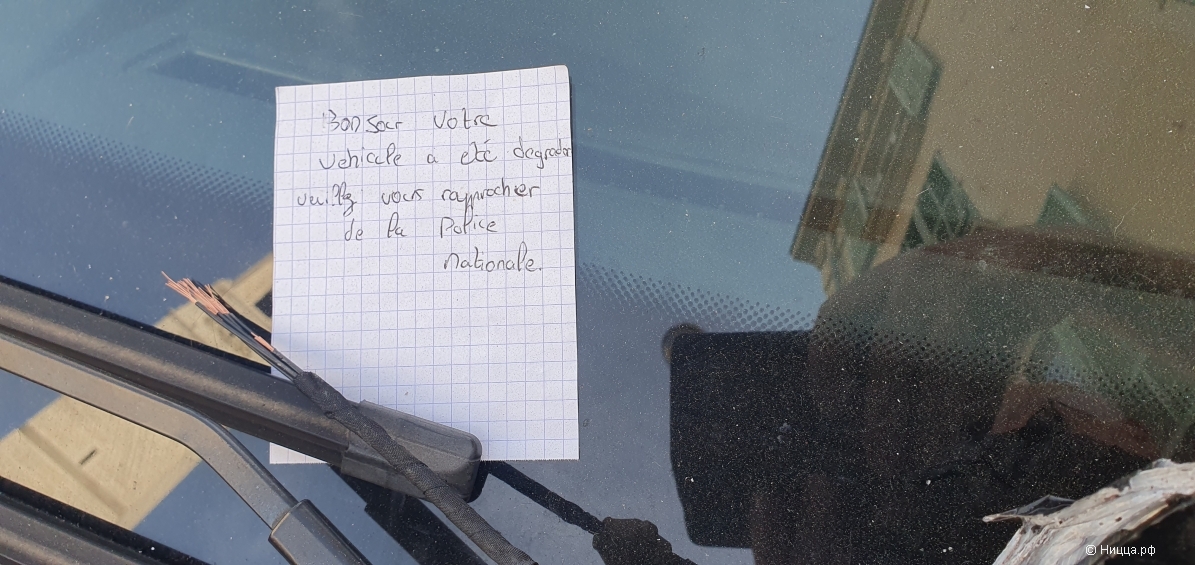 Bonsoir votre
vehicule a eté degrader
veuillez vous rapprocher
de la Police
nationale.
© Ницца.рф